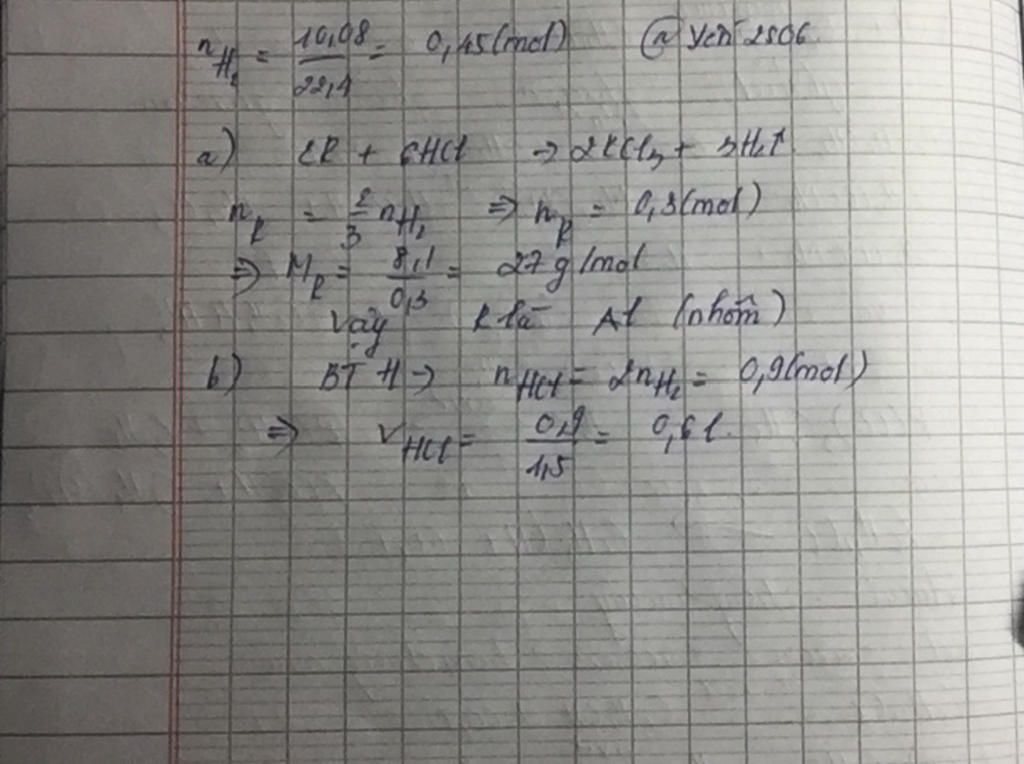 nH₂ = 10,08/22,4 = 0,45(mol) @ Yến 2506
a) 2R + 6HCl → 2RCl₃ + 3H₂↑
nR = 2/3 nH₂ ⇒ nR = 0,3(mol)
⇒ MR = 8,1/0,3 = 27 g/mol
Vậy R là Al (nhôm)
b) BT H → nHCl = 2nH₂ = 0,9(mol)
⇒ VHCl = 0,9/1,5 = 0,6 l.